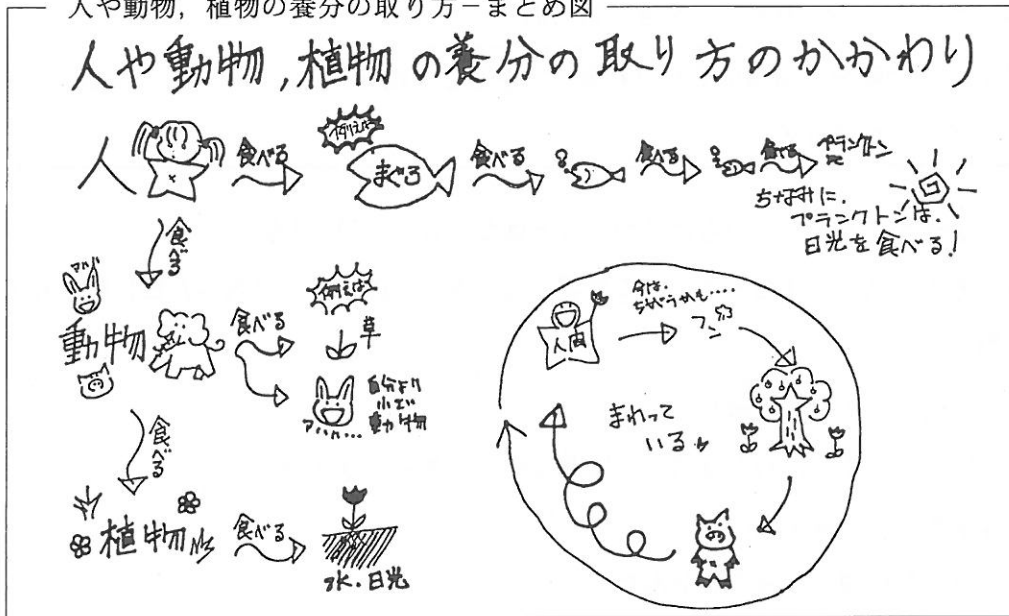 人や動物，植物の養分の取り方－まとめ図
人や動物,植物の養分の取り方のかかわり
人
食べる
例えば
まぐろ
食べる
食べる
食べる
プランクトン
ちなみに.
プランクトンは.
日光を食べる!
食べる
動物
食べる
例えば
草
自分より
小さい
動物
アハハ…
食べる
植物
食べる
水.日光
人間
今は.
ちがうかも....
フン
まわって
いる